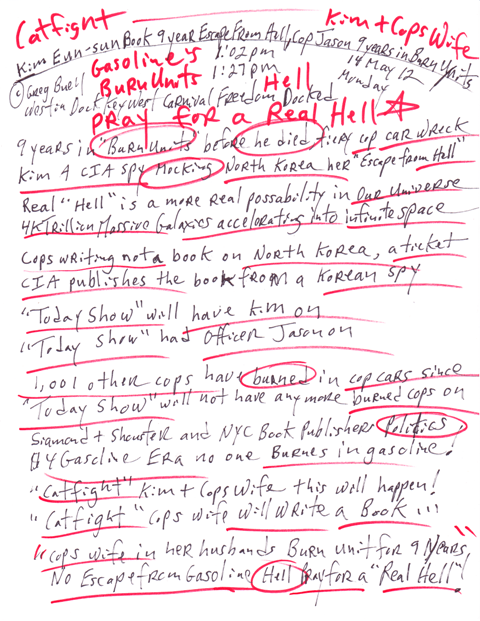 Catfight Kim + Cops Wife
Kim Eun-sun Book 9 year Escape From Hell, Cop Jason 9 years in Burn Units
Gasoline's 1:02pm
© Greg Buell Burn Units 1:27pm Hell 14 May 12 Monday
West in Dock Key West Carnival Freedom Docked
Pray for a Real Hell
9 years in "Burn Units" before he died fiery cop car wreck
Kim A CIA spy Mocking North Korea her "Escape from Hell"
Real "Hell" is a more real possability in Our Universe
4KTrillion Massive Galaxies accelorating into infinite space
Cops writing not a book on North Korea, a ticket
CIA publishes the book from a Korean spy
"Today Show" will have Kim on
"Today Show" had Officer Jason on
1,001 other cops have burned in cop cars since
"Today Show" will not have any more burned cops on
Sigmond + Shouster and NYC Book Publishers Politics,
$4 Gasoline Era no one Burnes in gasoline!
"Catfight" Kim + Cops Wife this will happen!
"Catfight" Cops wife will write a Book !!!
"Cops wife in her husbands Burn Unit for 9 Years"
No Escape from Gasoline Hell Pray for a "Real Hell"!